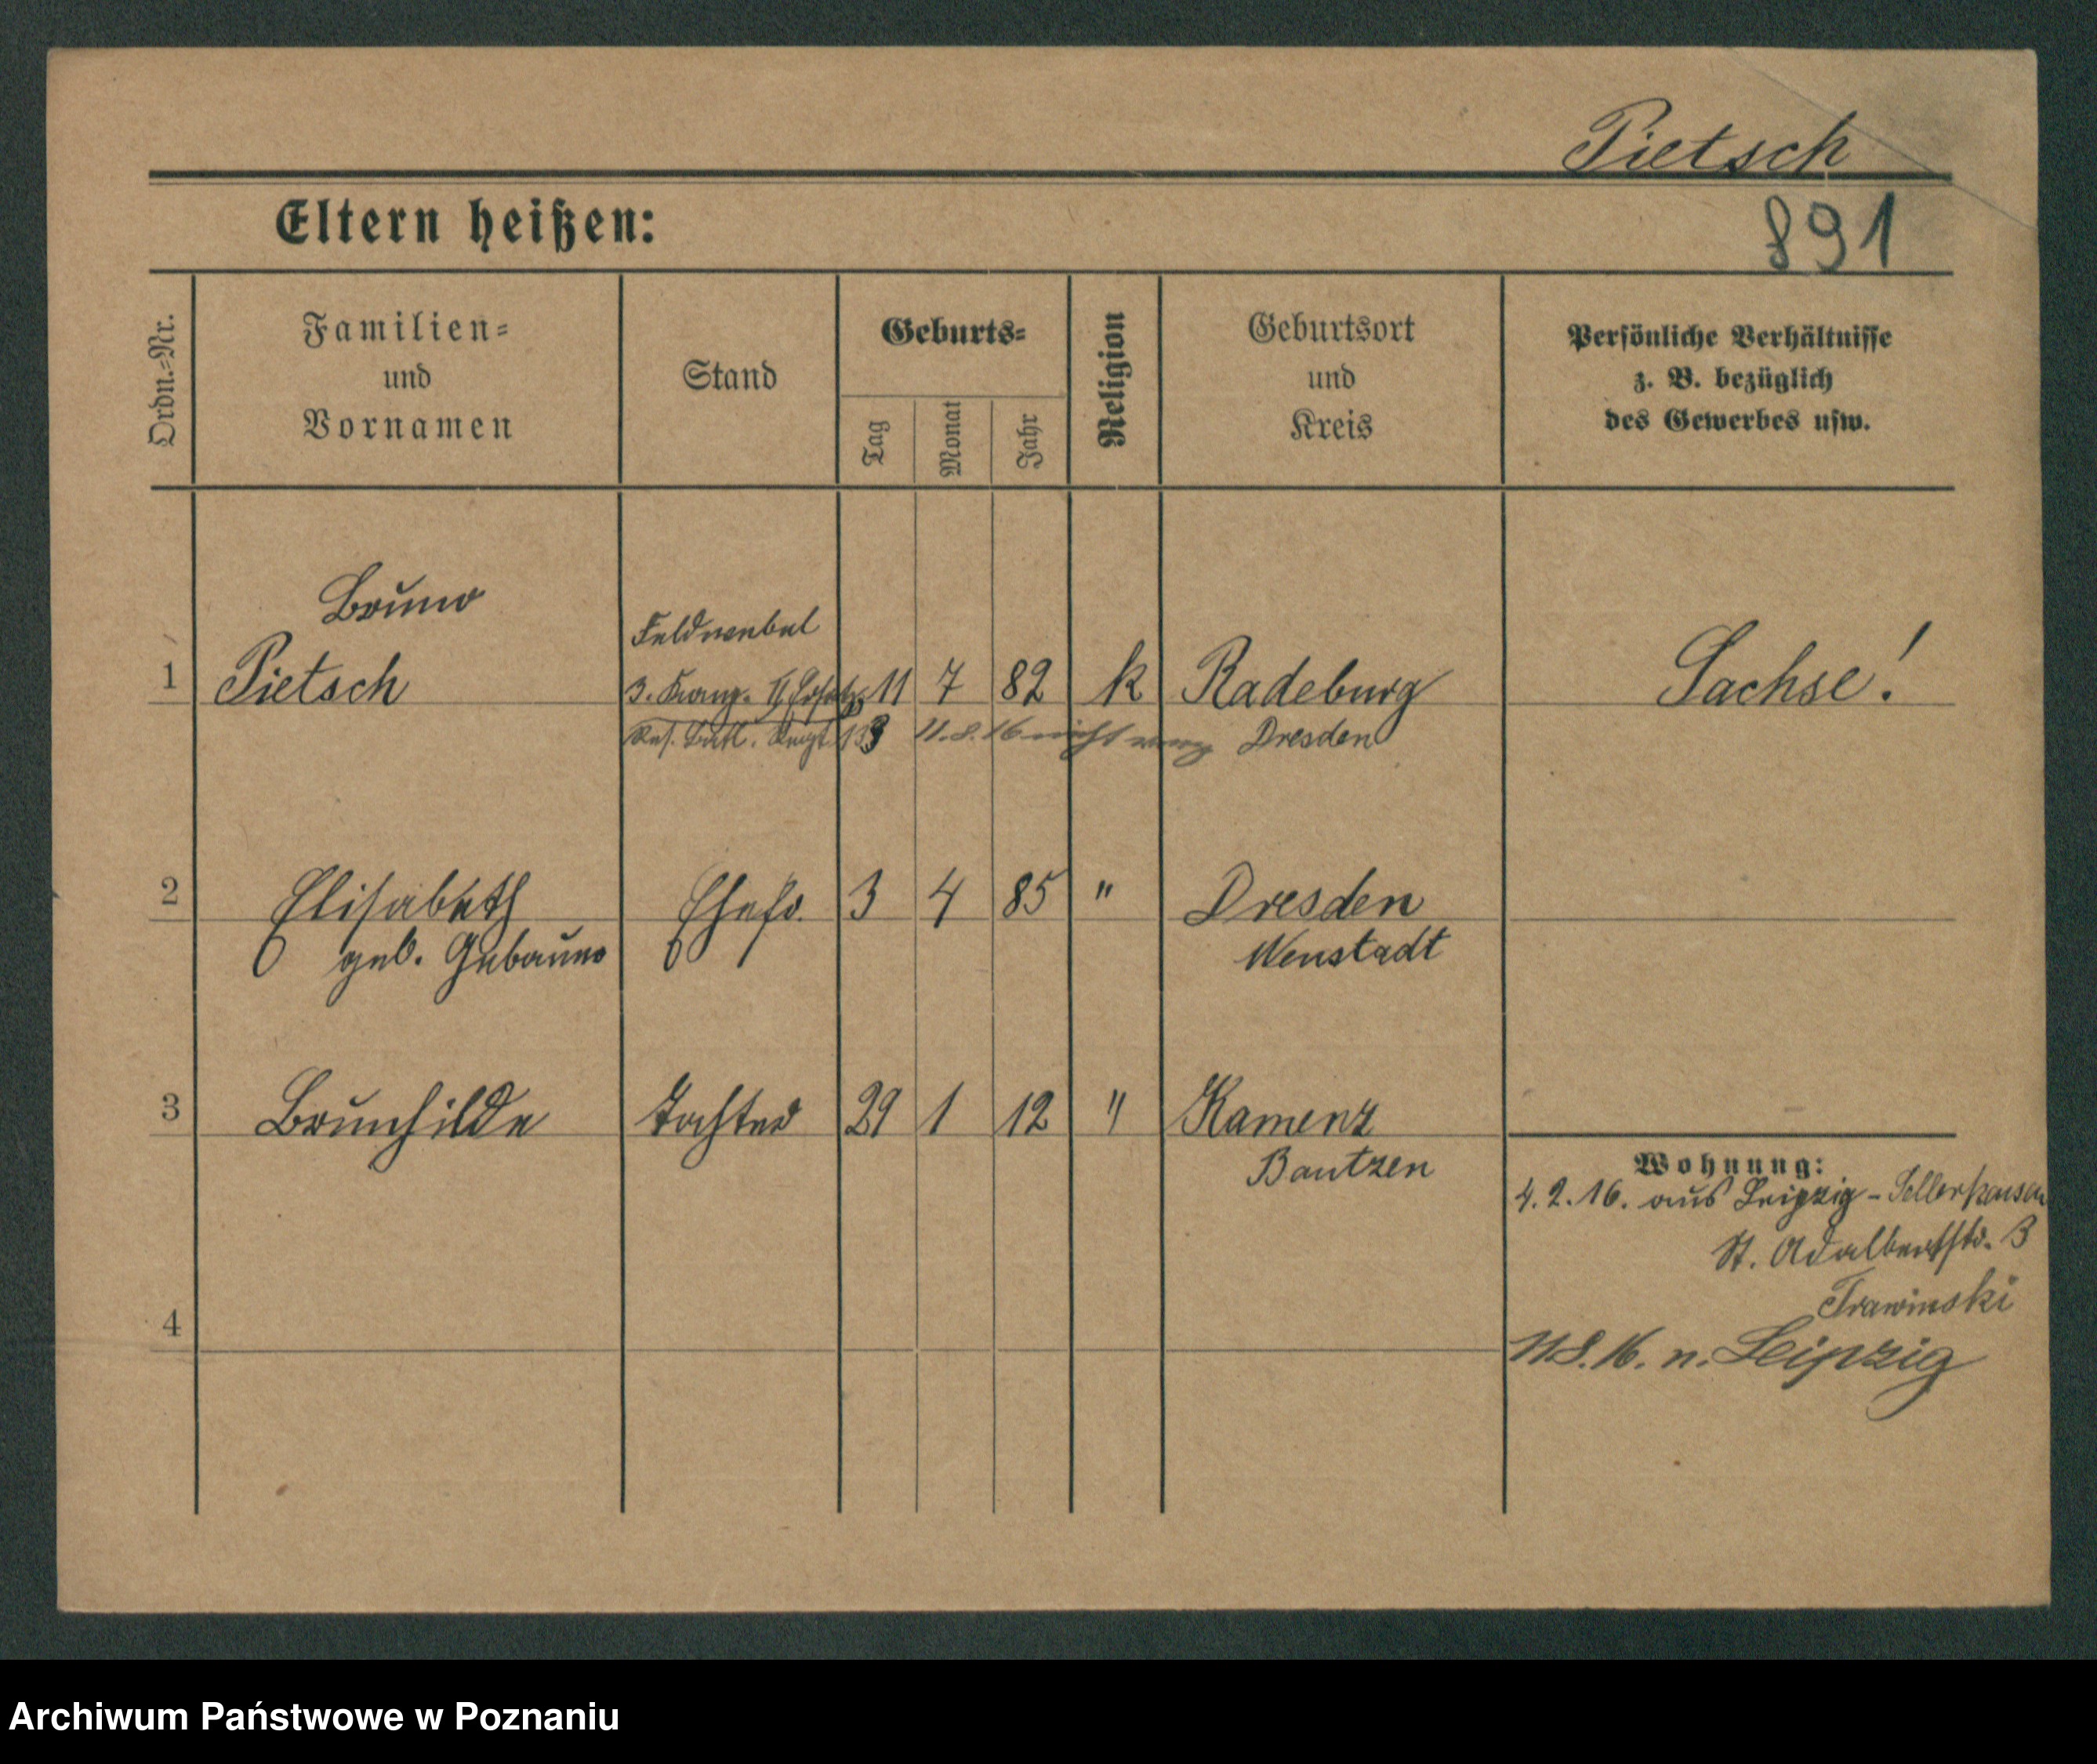 Pietsch
Eltern heißen:
891
Ordn.-Nr.
Familien-
und
Vornamen
Stand
Geburts-
Tag
Monat
Jahr
Religion
Geburtsort
und
Kreis
Persönliche Verhältnisse
z. B. bezüglich
des Gewerbes usw.
Bruno
Feldwebel
1 Pietsch 3. II Ersatz 11 7 82 k Radeburg Sachse!
Batl. 133 11.8.16 nicht Dresden
2 Elisabeth Ehefr. 3 4 85 " Dresden
geb. Neustadt
3 Brunhilde Tochter 29 1 12 " Kamenz
Bautzen
Wohnung:
4.2.16. aus Leipzig-Sellerhausen
St. Adalbertstr. 3
Trawinski
4
11.8.16. n. Leipzig
Archiwum Państwowe w Poznaniu